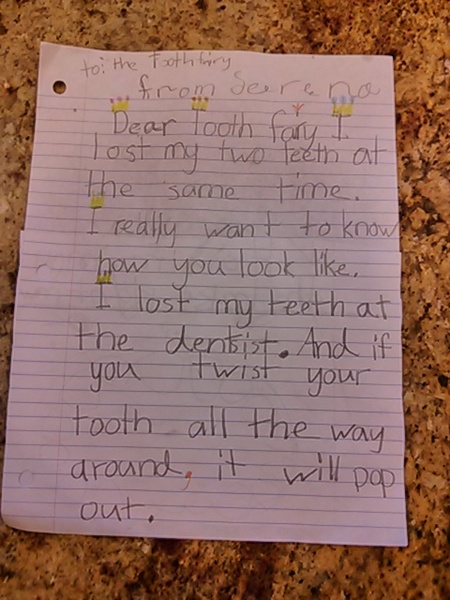 to: the Toothfairy
from Serena
Dear Tooth fary I
lost my two teeth at
the same time.
I really want to know
how you look like.
I lost my teeth at
the dentist. And if
you twist your
tooth all the way
around, it will pop
out.